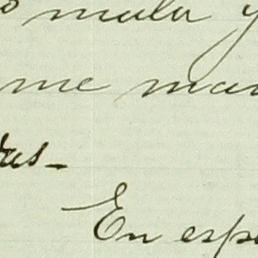 o mala y
me man
tas-
En espe